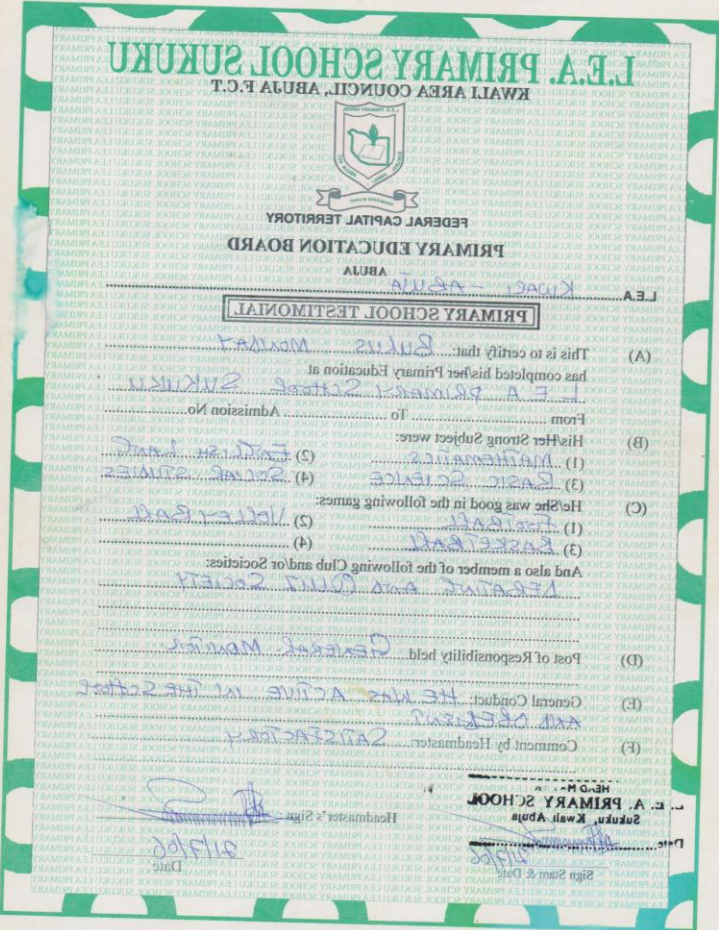 L.E.A. PRIMARY SCHOOL SUKUKU
KWALI AREA COUNCIL, ABUJA F.C.T
FEDERAL CAPITAL TERRITORY
PRIMARY EDUCATION BOARD
ABUJA
L.E.A. KWALI - ABUJA
PRIMARY SCHOOL TESTIMONIAL
(A) This is to certify that: BULUS MONDAY
has completed his/her Primary Education at
L.E.A PRIMARY SCHOOL SUKUKU
From To Admission No.
(B) His/Her Strong Subject were:
(1) MATHEMATICS (2) ENGLISH LANG
(3) BASIC SCIENCE (4) SOCIAL STUDIES
(C) He/She was good in the following games:
(1) FOOTBALL (2) VOLLEYBALL
(3) BASKETBALL (4)
And also a member of the following Club and/or Societies:
AND SOCIETY
(D) Post of Responsibility held. GENERAL MONITOR
(E) General Conduct: HE WAS ACTIVE IN THE SCHOOL
AND OBEDIENT
(F) Comment by Headmaster: SATISFACTORY
L. E. A. PRIMARY SCHOOL
Sukuku, Kwali Abuja
Date
Headmaster's Sign
21/7/06
Sign Stam & Date
21/7/06
Date